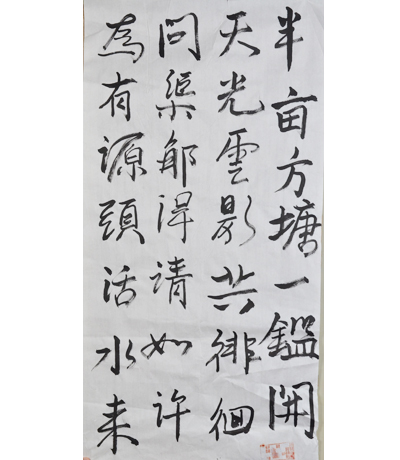 半亩方塘一鑑開
天光雲影共徘徊
問渠那得清如许
為有源頭活水来